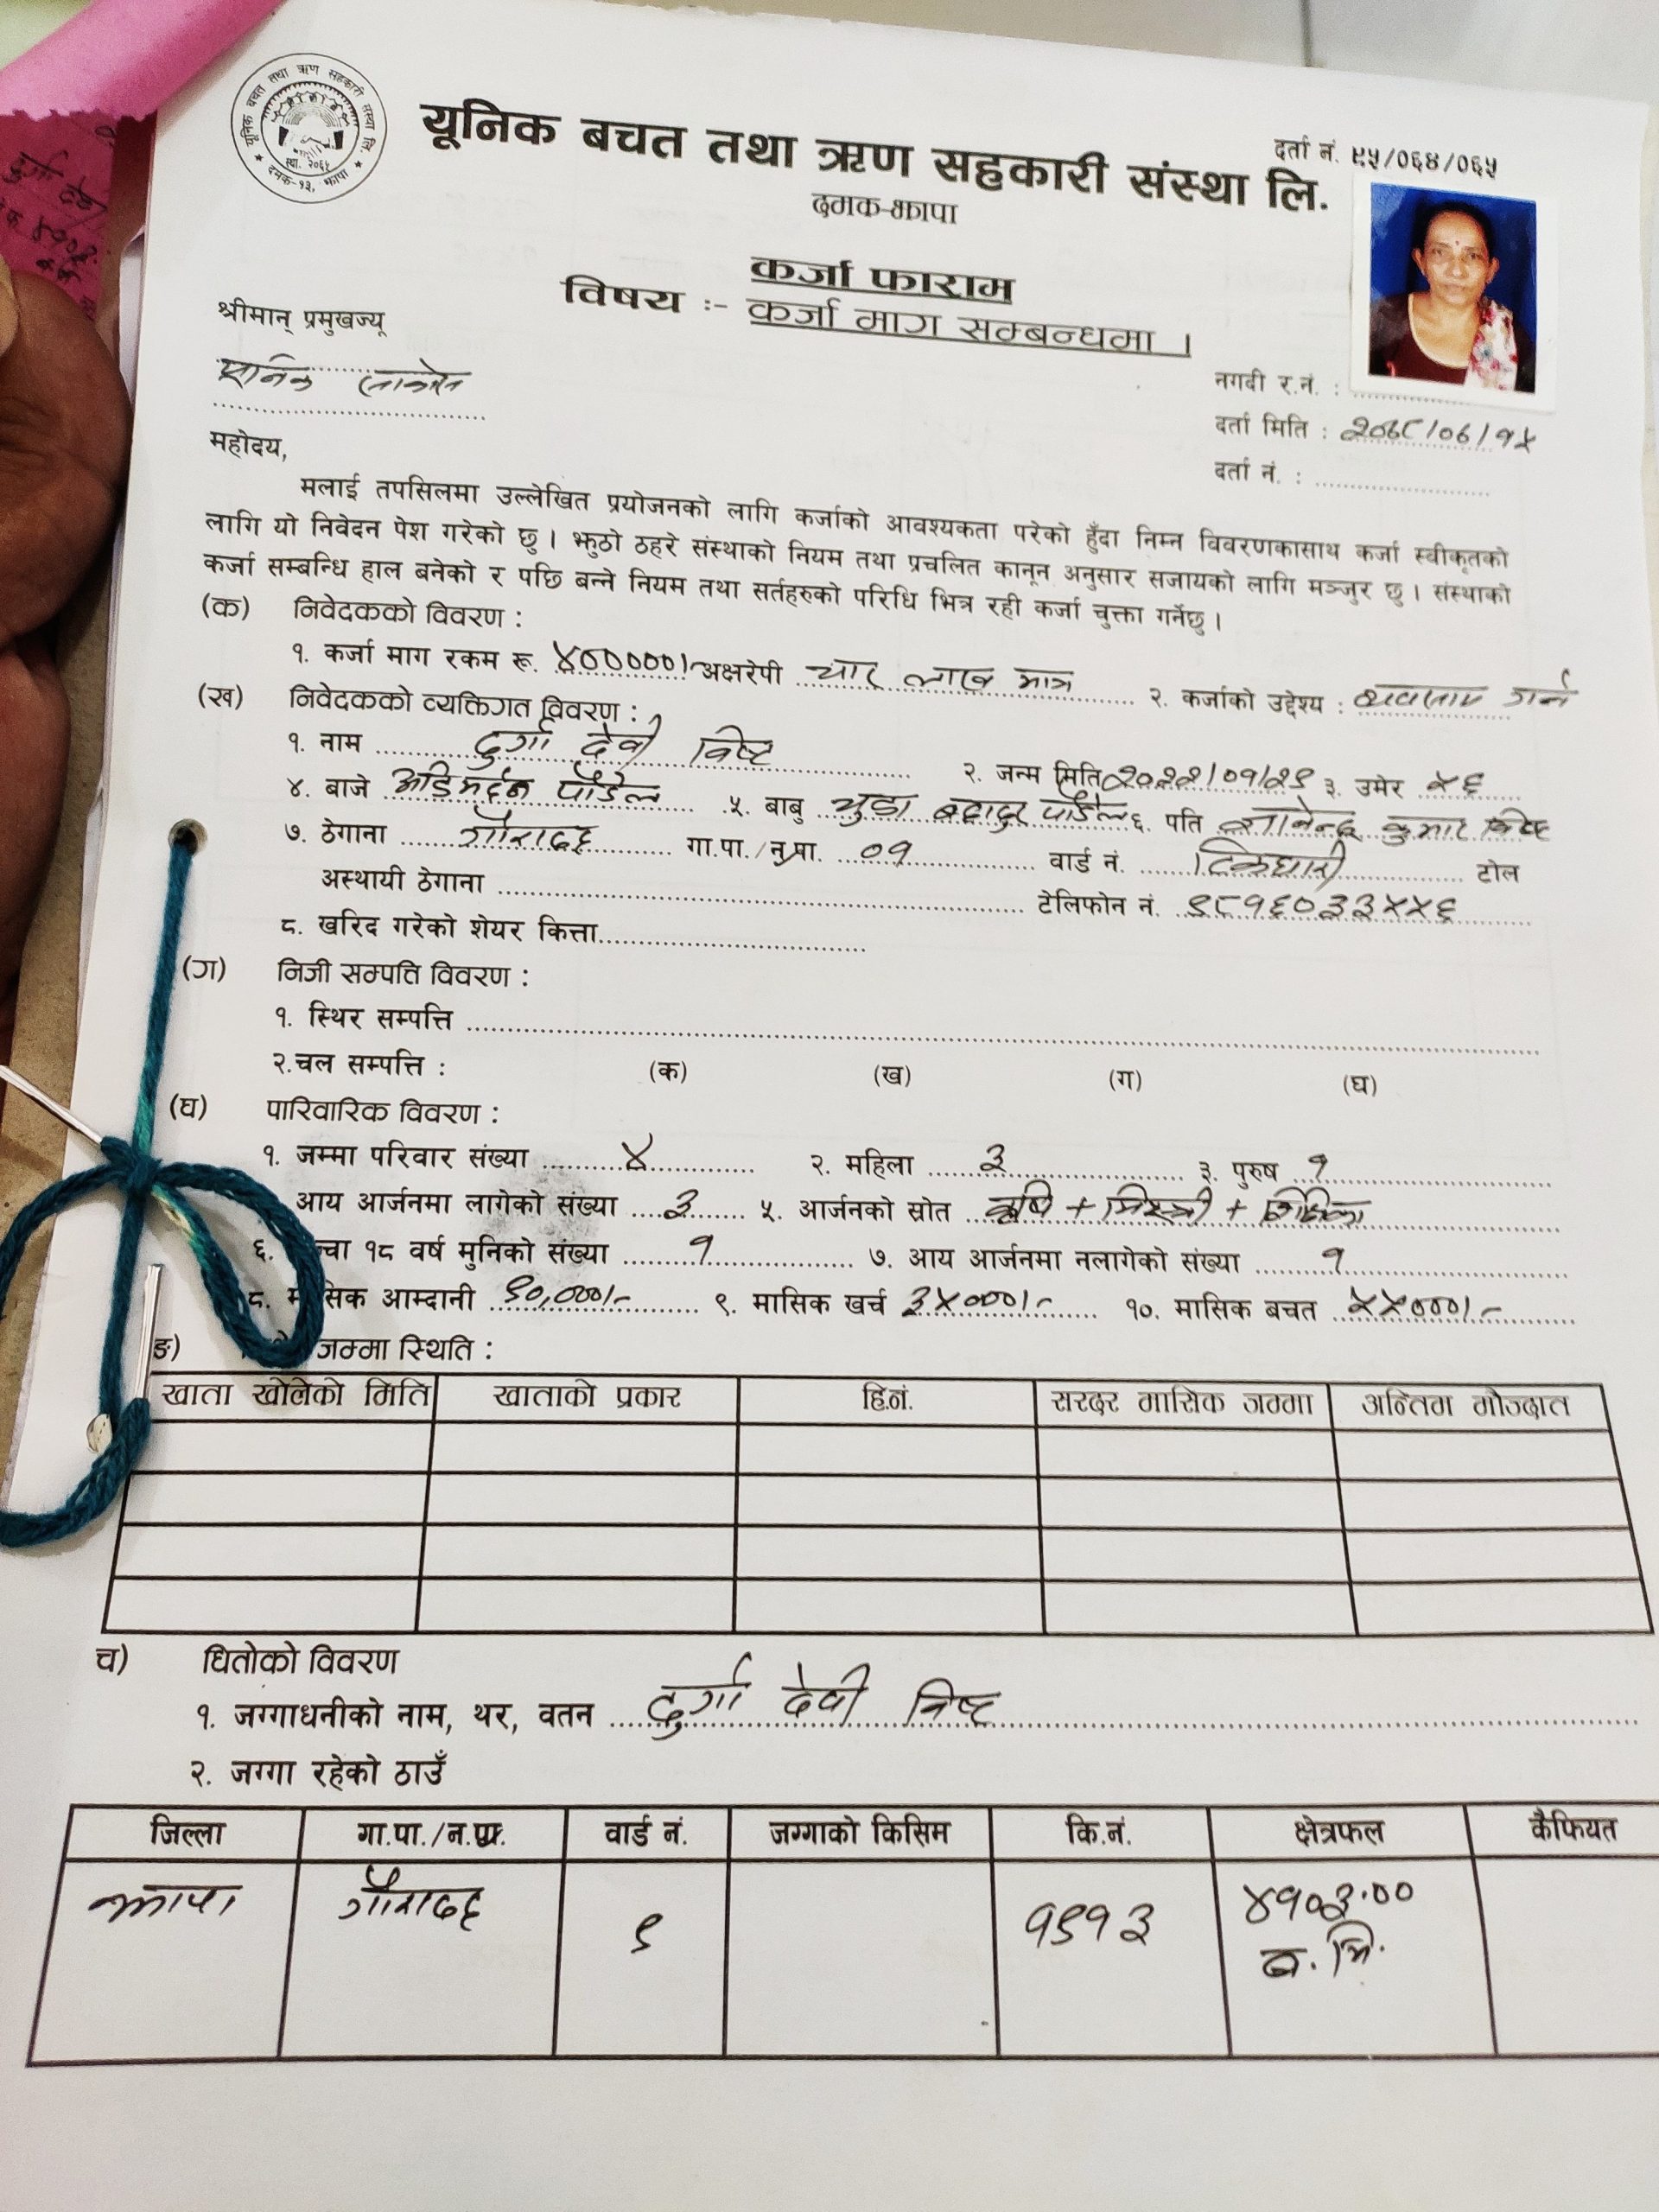 यूनिक बचत तथा ऋण सहकारी संस्था लि.
स्था. २०६५
दमक-१३, झापा
दर्ता नं. ९५/०६४/०६५
यूनिक बचत तथा ऋण सहकारी संस्था लि.
दमक-झापा
कर्जा फाराम
विषय :- कर्जा माग सम्बन्धमा ।
श्रीमान् प्रमुखज्यू
नगदी र.नं. :
दर्ता मिति : २०७८/०७/१५
दर्ता नं. :
महोदय,
मलाई तपसिलमा उल्लेखित प्रयोजनको लागि कर्जाको आवश्यकता परेको हुँदा निम्न विवरणकासाथ कर्जा स्वीकृतको
लागि यो निवेदन पेश गरेको छु । झुठो ठहरे संस्थाको नियम तथा प्रचलित कानून अनुसार सजायको लागि मञ्जुर छु । संस्थाको
कर्जा सम्बन्धि हाल बनेको र पछि बन्ने नियम तथा सर्तहरुको परिधि भित्र रही कर्जा चुक्ता गर्नेछु ।
(क) निवेदकको विवरण :
१. कर्जा माग रकम रू. ४०००००/- अक्षरेपी चार लाख मात्र २. कर्जाको उद्देश्य : व्यवसाय गर्न
(ख) निवेदकको व्यक्तिगत विवरण :
१. नाम दुर्गा देवी विष्ट २. जन्म मिति २०२२/०१/२९ ३. उमेर ५६
४. बाजे अडिमर्दन पौडेल ५. बाबु चुडा बहादुर पौडेल ६. पति ज्ञानेन्द्र कुमार विष्ट
७. ठेगाना गौरादह गा.पा./न.पा. ०१ वार्ड नं. टिकधारी टोल
अस्थायी ठेगाना टेलिफोन नं. ९८१६०३३४५६
८. खरिद गरेको शेयर कित्ता
(ग) निजी सम्पत्ति विवरण :
१. स्थिर सम्पत्ति
२.चल सम्पत्ति : (क) (ख) (ग) (घ)
(घ) पारिवारिक विवरण :
१. जम्मा परिवार संख्या ४ २. महिला ३ ३. पुरुष १
आय आर्जनमा लागेको संख्या ३ ५. आर्जनको स्रोत कृषि + मिस्त्री + शिक्षिका
६. च्चा १८ वर्ष मुनिको संख्या १ ७. आय आर्जनमा नलागेको संख्या १
८. मासिक आम्दानी ९०,०००/- ९. मासिक खर्च ३५०००/- १०. मासिक बचत ५५०००/-
ङ) जम्मा स्थिति :
खाता खोलेको मिति खाताको प्रकार हि.नं. सरदर मासिक जम्मा अन्तिम मौज्दात
च) धितोको विवरण
१. जग्गाधनीको नाम, थर, वतन दुर्गा देवी विष्ट
२. जग्गा रहेको ठाउँ
जिल्ला गा.पा./न.पा. वार्ड नं. जग्गाको किसिम कि.नं. क्षेत्रफल कैफियत
झापा गौरादह ९ १९१३ ४१०३.००
व. मि.